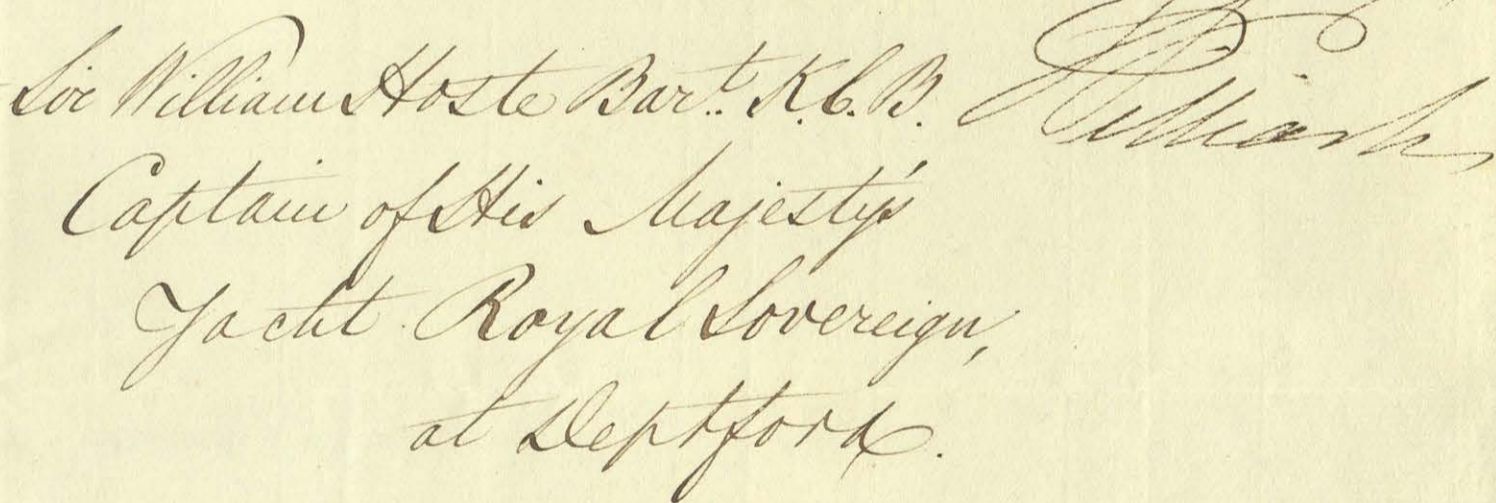 Sir William Hoste Bar.t K.C.B.
Captain of His Majesty's
Yacht Royal Sovereign,
at Deptford.